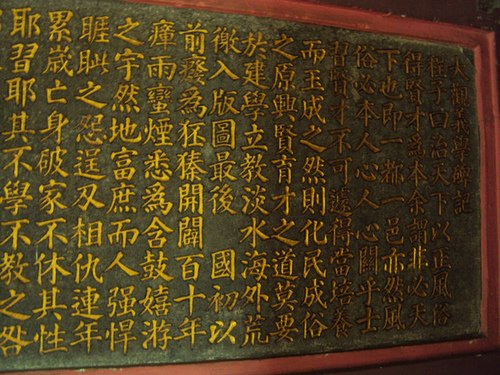 大觀義學碑記
程子曰治天下以正風俗
得賢才為本余謂非必天
下也即一鄉一邑亦然風
俗必本人心人心關乎士
習賢才不可遽得當培養
而玉成之然則化民成俗
之原興賢育才之道莫要
於建學立教淡水海外荒
徼入版圖最後 國初以
前癈為狂獉開闢百十年
瘴雨蠻煙悉為含鼓嬉游
之宇然地富庶而人强悍
睚眦之怨逞刃相仇連年
累歲亡身破家不休其性
耶習耶其不學不教之咎